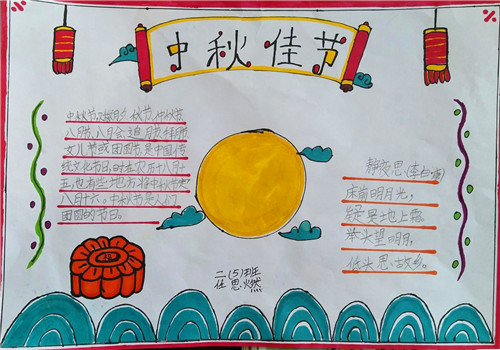 中秋佳节
中秋节又称月夕、秋节、仲秋节
八月节、八月会、追月节、拜月节
女儿节或团圆节,是中国传
统文化节日,时在农历八月十
五,也有些地方将中秋节定
八月十六。中秋节是人们
团圆的节日。
静夜思(李白
床前明月光,
疑是地上霜。
举头望明月,
低头思故乡。
二(5)班
任思燃